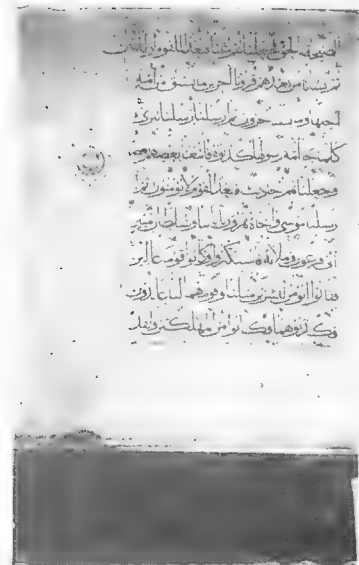 الصيحة بالحق فجعلنهم غثاء فبعدا للقوم الظلمين
ثم انشانا من بعدهم قرونا اخرين ما تسبق من امة
اجلها وما يستخرون ثم ارسلنا رسلنا تترى
كلما جا امة رسولها كذبوه فاتبعنا بعضهم بعضا
وجعلنهم احاديث فبعدا لقوم لا يومنون ثم
ارسلنا موسى واخاه هرون بايتنا وسلطان مبين
الى فرعون وملايه فاستكبروا وكانوا قوما عالين
فقالوا انومن لبشرين مثلنا وقومهما لنا عابدون
فكذبوهما فكانوا من المهلكين ولقد